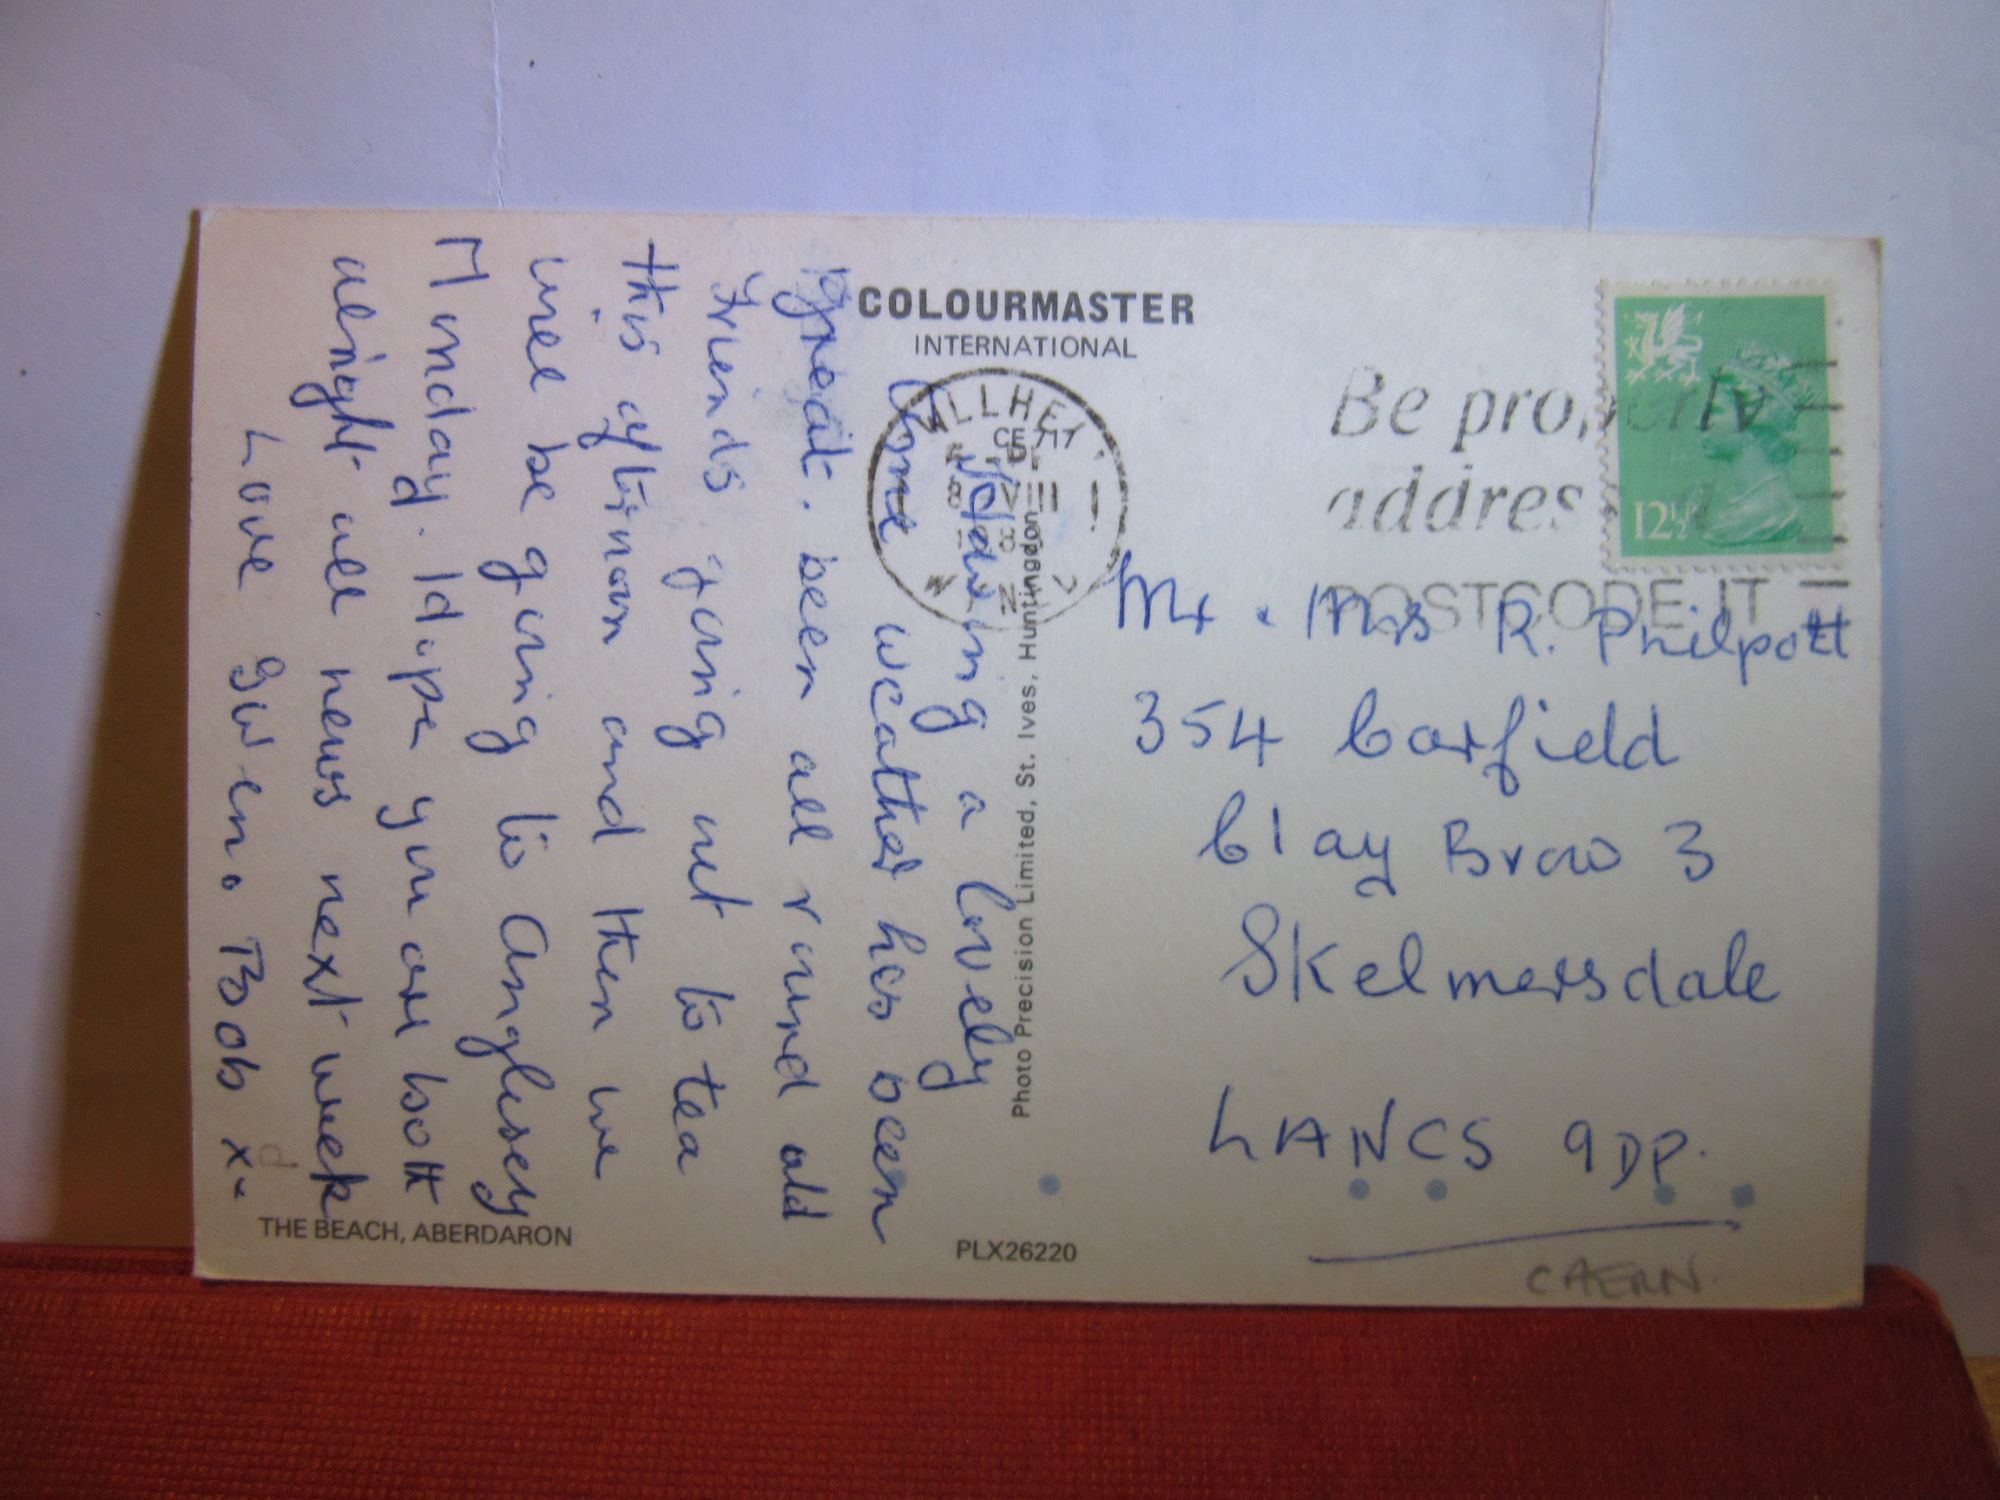 COLOURMASTER
INTERNATIONAL
Be properly
addressed
POSTCODE IT
12½
Having a lovely
time weather has been
great. been all round old
friends going out to tea
this afternoon and then we
will be going to Anglesey
Monday. I hope you are both
alright all news next week
Love Gwen. Bob x
Photo Precision Limited, St. Ives, Huntingdon
Mr. Mrs R. Philpott
354 Carfield
Clay Brow 3
Skelmersdale
LANCS 9DP.
CAERN.
THE BEACH, ABERDARON
PLX26220